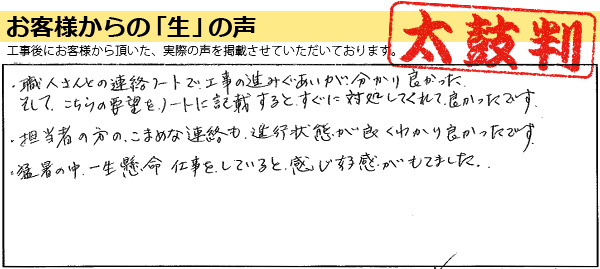 お客様からの「生」の声
太鼓判
工事後にお客様から頂いた、実際の声を掲載させていただいております。
・職人さんとの連絡ノートで工事の進みぐあいが、分かり良かった
そして、こちらの要望をノートに記載すると、すぐに対処してくれて良かったです。
・担当者の方の、こまめな連絡も、進行状態が良くわかり良かったです。
・猛暑の中、一生懸命仕事をしていると、感じ好感がもてました。